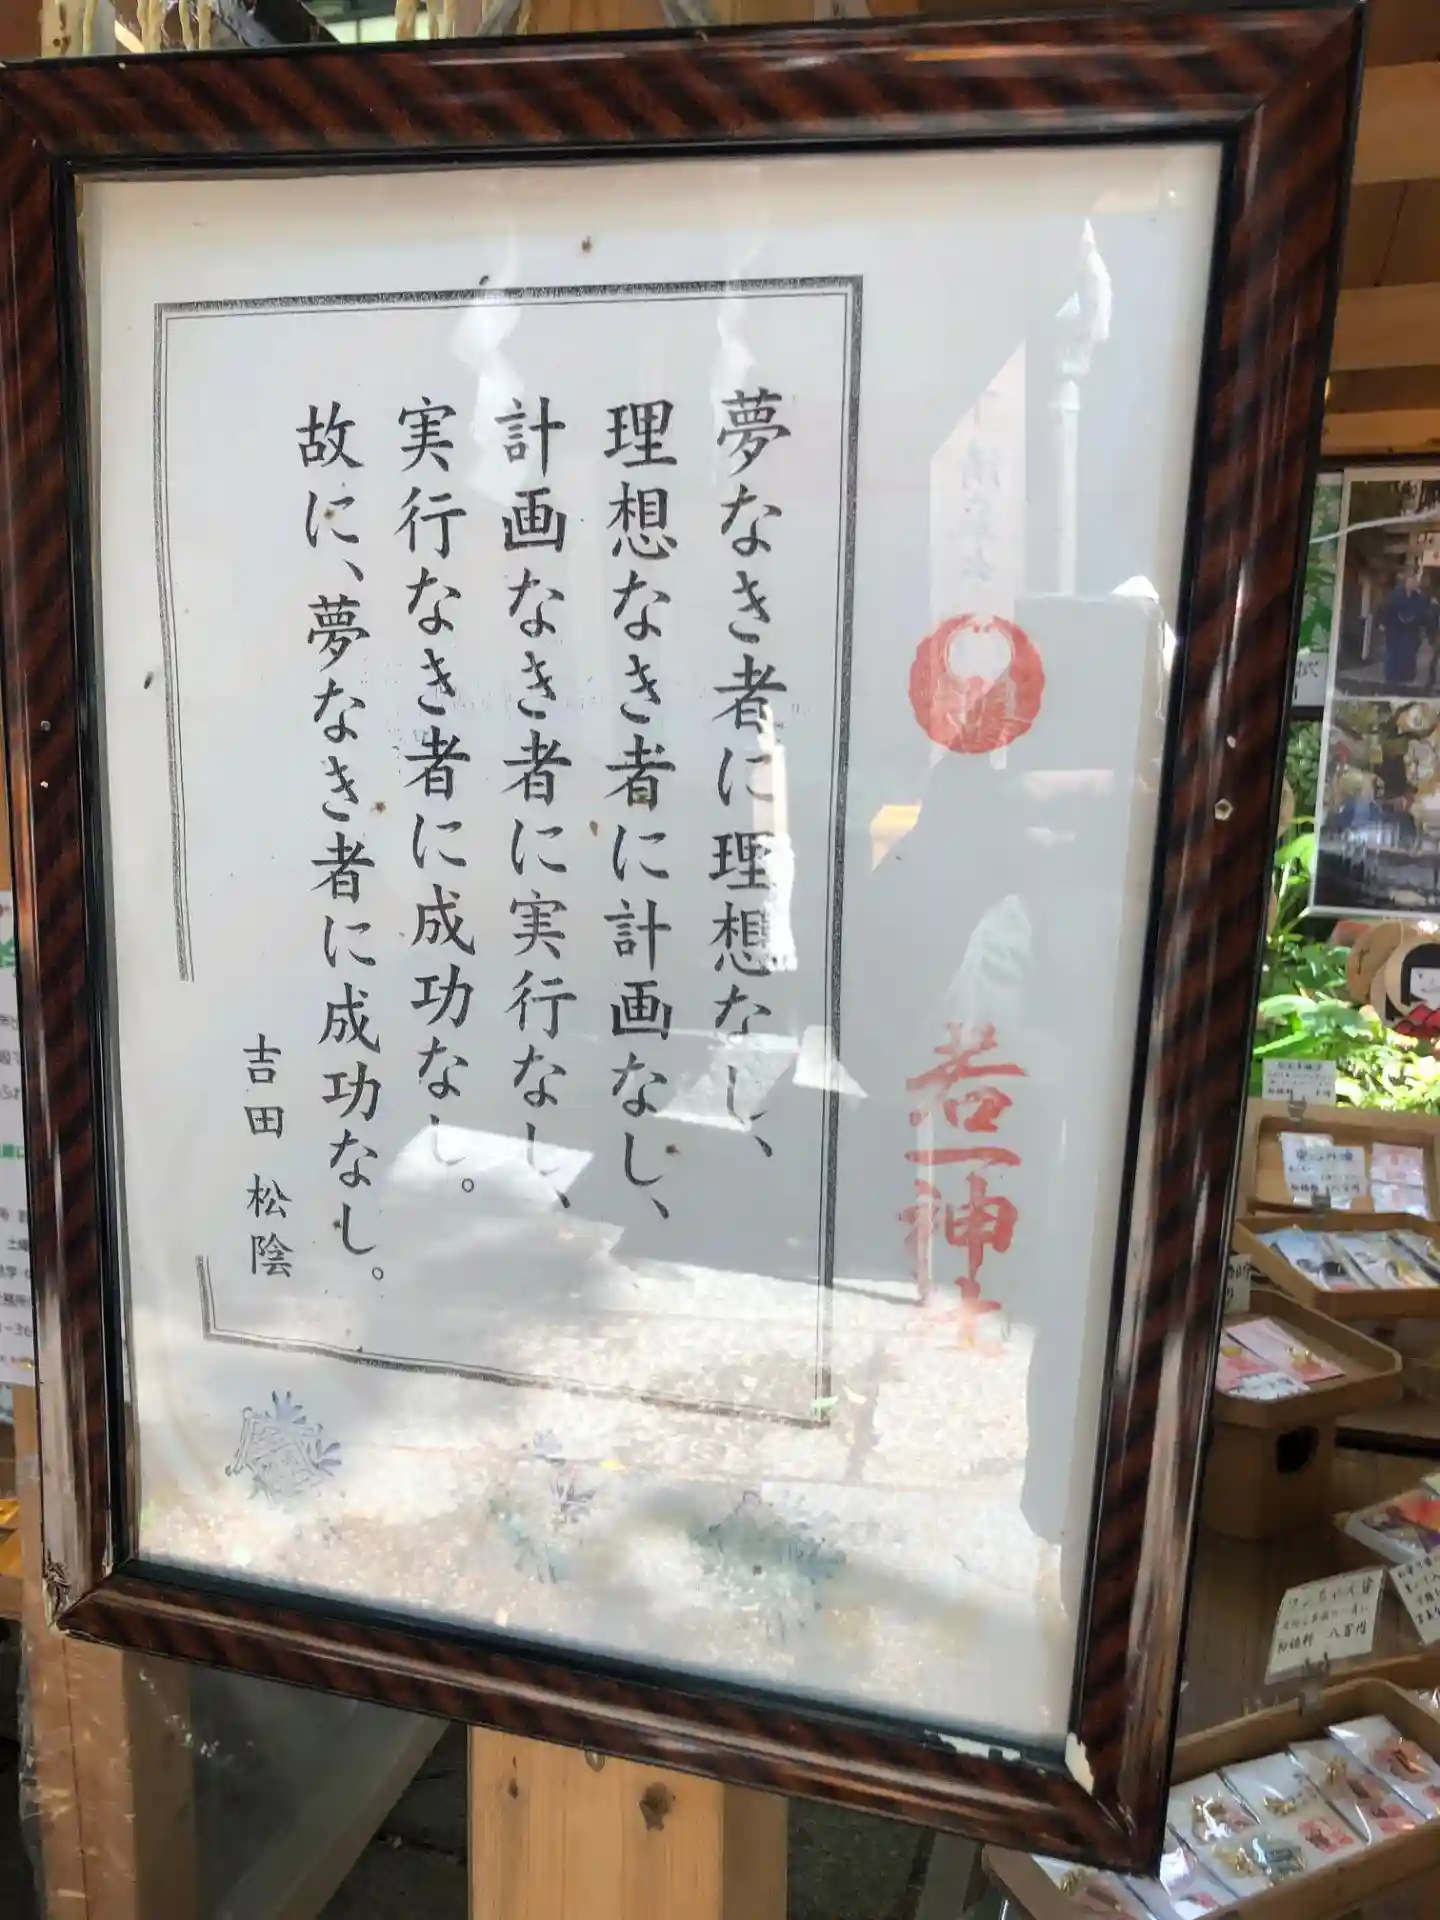 若一神社
夢なき者に理想なし、
理想なき者に計画なし、
計画なき者に実行なし、
実行なき者に成功なし。
故に、夢なき者に成功なし。
吉田 松陰
初穂料 八百円